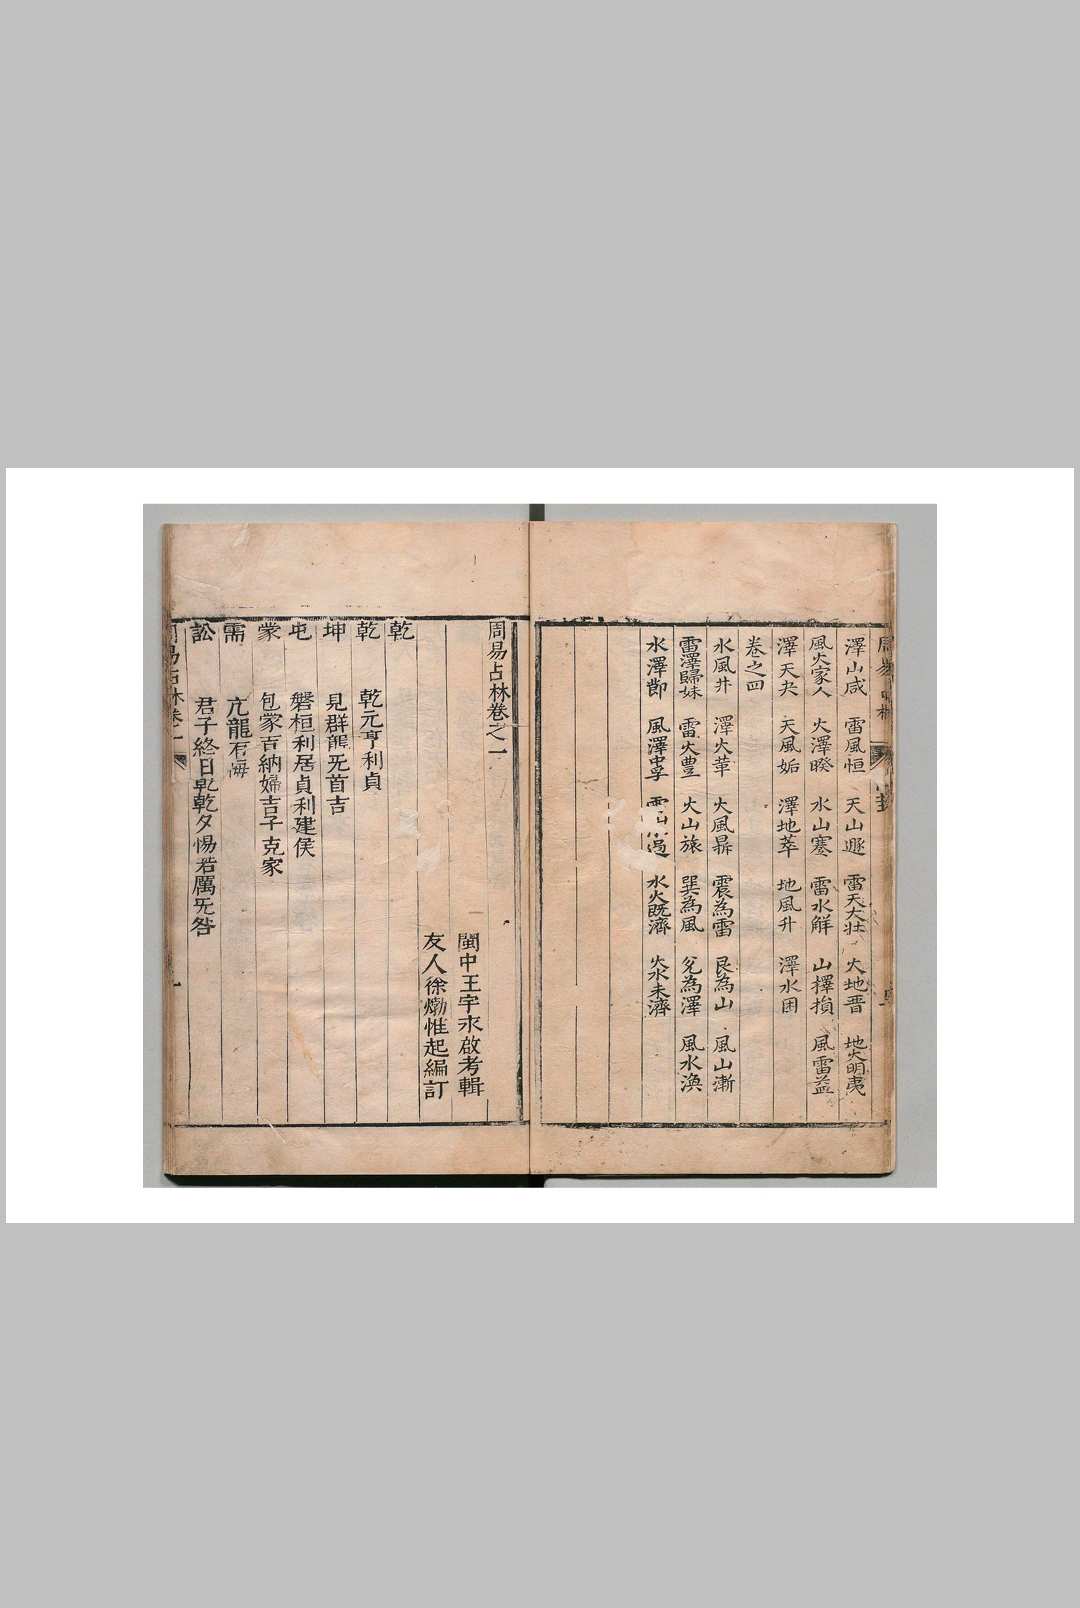 澤山咸 雷風恒 天山遯 雷天大壯 火地晋 地火明夷
風火家人 火澤睽 水山蹇 雷水解 山擇損 風雷益
澤天夬 天風姤 澤地萃 地風升 澤水困
卷之四
水風井 澤火革 火風鼎 震為雷 艮為山 風山漸
雷澤歸妹 雷火豊 火山旅 巽為風 兌為澤 風水渙
水澤節 風澤中孚 過 水火既濟 火水未濟
周易占林卷之一
閩中王宇永啟考輯
友人徐𤊹惟起編訂
乾
乾 乾元亨利貞
坤 見群龍旡首吉
屯 磐桓利居貞利建侯
蒙 包蒙吉納婦吉子克家
需 亢龍有悔
訟 君子終日乾乾夕惕若厲旡咎
周易占林卷一